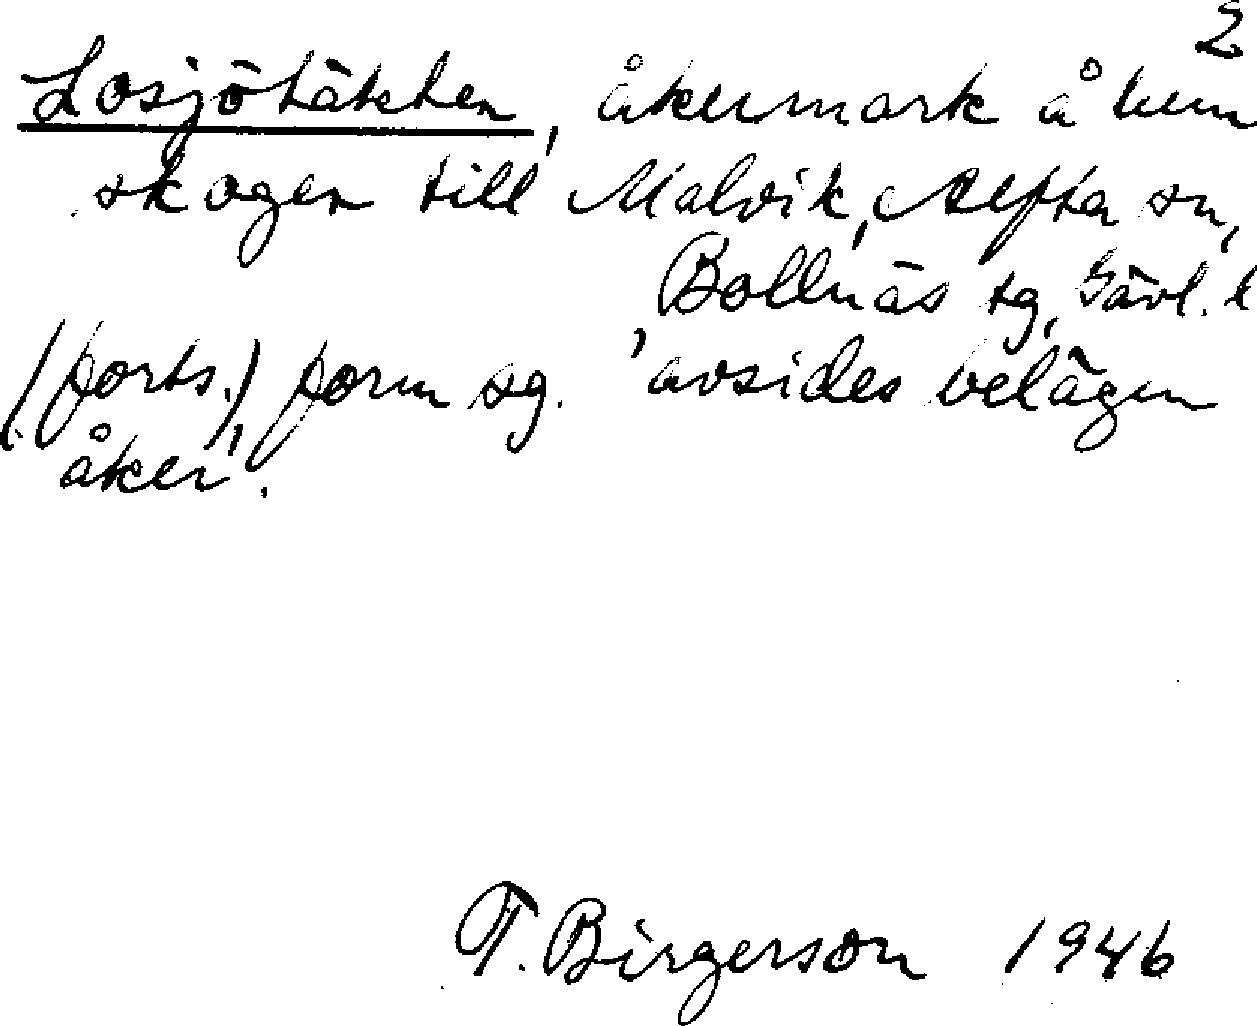 2
Losjötäkten, åkermark å hem
skogen till Malvik, Alfta sn,
Bollnäs tg, Gävl. l
(forts.) form sg. 'avsides belägen
åker'.
T. Birgerson 1946